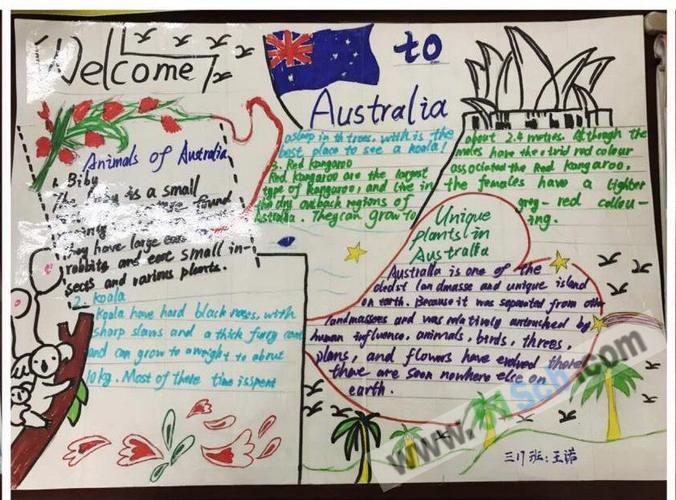 Welcome
to
Australia
Animals of Australia
1. Biby
The biby is a small
found
They have large ears
rabbits and eat small in-
sects and various plants.
2. Koala
Koala have hard black noses, with
sharp slaws and a thick furry coat
and can grow to a weight to about
10kg. Most of there time is spent
asleep in th trees, with is the
best place to see a koala!
3. Red kangaroo
Red kangaroo are the largest
type of kangaroo, and live in
the dry outback regions of
Australia. They can grow to
about 2.4 metres. Although the
males have the vivid red colour
associated the Red kangaroo,
the females have a lighter
grey-red colou-
ing.
Unique
plants in
Australia
Australia is one of the
oldest landmasse and unique island
on earth. Because it was separated from other
landmasses and was relatively untouched by
human influence, animals, birds, threes,
plans, and flowers have evolved there
that are seen nowhere else on
earth.
三17班:王诺